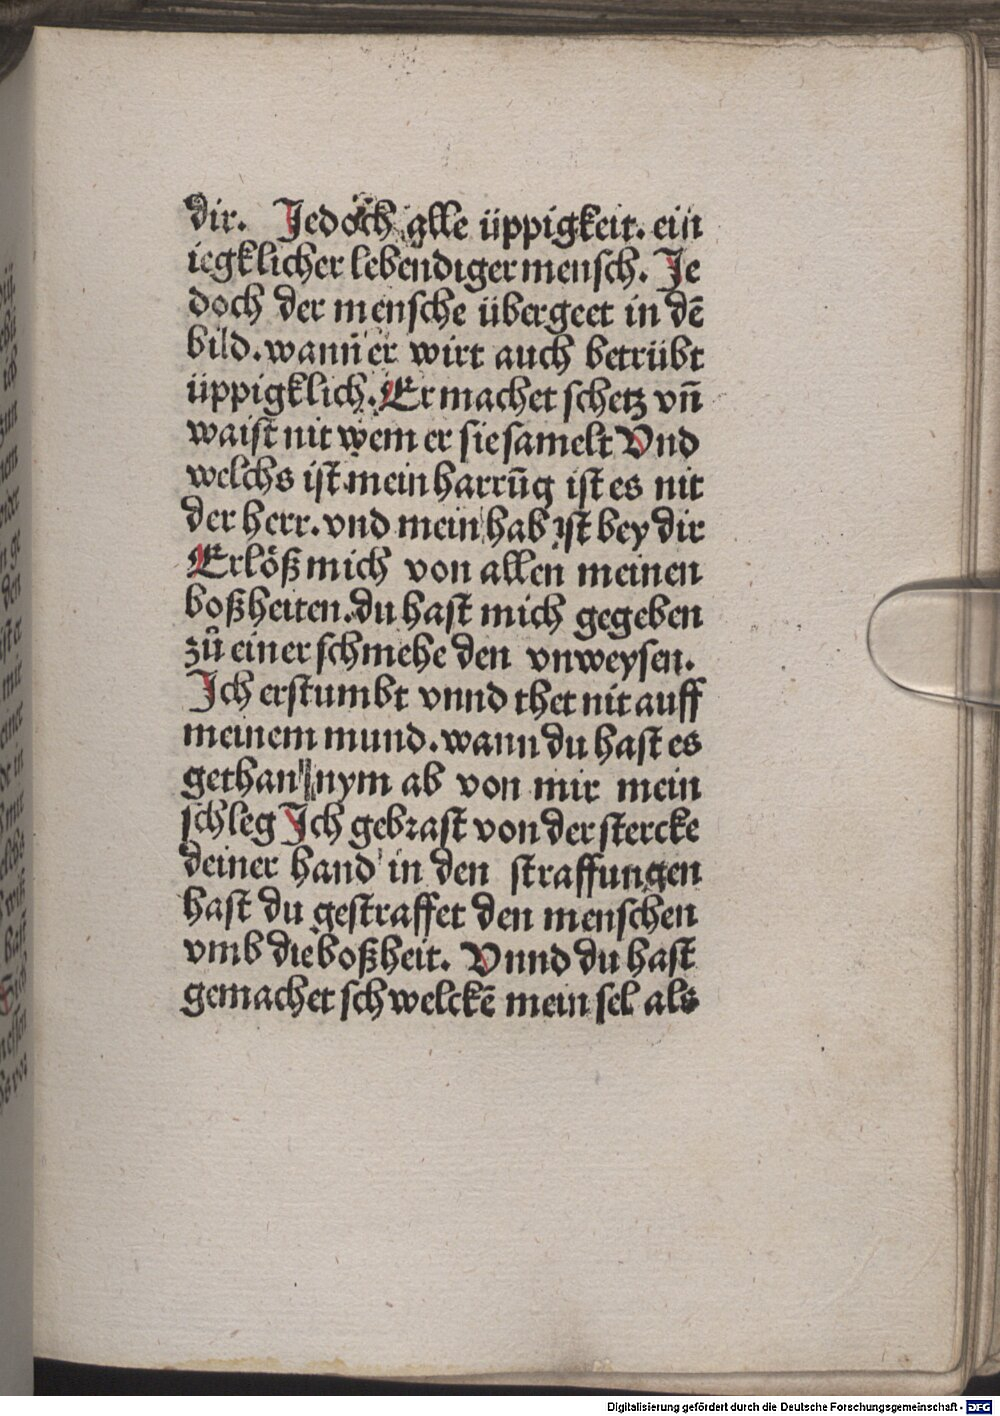 dir. Jedoch alle üppigkeit. ein
iegklicher lebendiger mensch. Je
doch der mensche übergeet in dē
bild. wann er wirt auch betrübt
üppigklich. Er machet schetz vn̄
waist nit wem er sie samelt Vnd
welchs ist mein harrūg ist es nit
der herr. vnd mein hab ist bey dir
Erlöß mich von allen meinen
boßheiten. du hast mich gegeben
zů einer schmehe den vnweysen.
Ich erstumbt vnnd thet nit auff
meinem mund. wann du hast es
gethan nym ab von mir mein
schleg Ich gebrast von der stercke
deiner hand in den straffungen
hast du gestraffet den menschen
vmb die boßheit. Vnnd du hast
gemachet schwelckē mein sel als
Digitalisierung gefördert durch die Deutsche Forschungsgemeinschaft - DFG